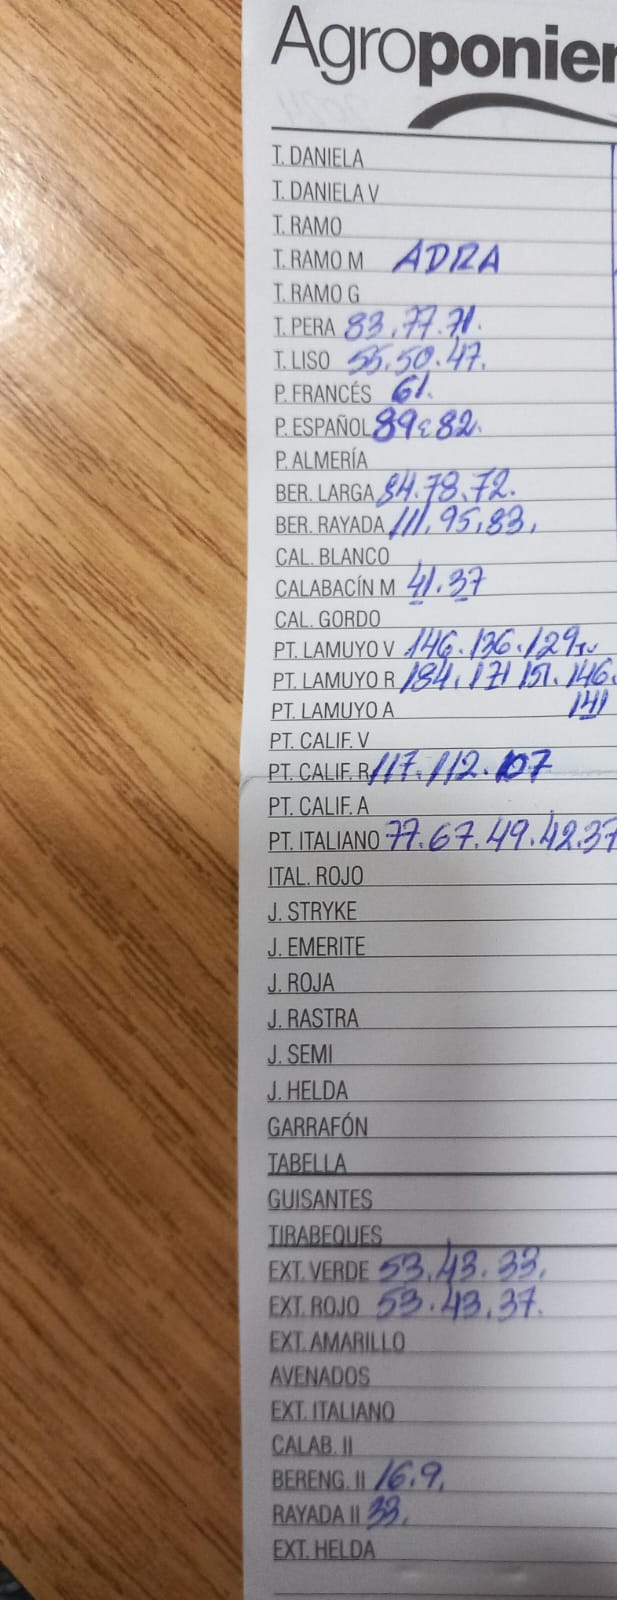 Agroponien
T. DANIELA
T. DANIELA V
T. RAMO
T. RAMO M ADRA
T. RAMO G
T. PERA 83.77.71.
T. LISO 55.50.47.
P. FRANCÉS 61.
P. ESPAÑOL 89 82.
P. ALMERÍA
BER. LARGA 84.78.72.
BER. RAYADA 111.95.83.
CAL. BLANCO
CALABACÍN M 41.37
CAL. GORDO
PT. LAMUYO V 146.136.129
PT. LAMUYO R 184.171 151.146.
PT. LAMUYO A 141
PT. CALIF. V
PT. CALIF. R 117.112.107
PT. CALIF. A
PT. ITALIANO 77.67.49.42.37
ITAL. ROJO
J. STRYKE
J. EMERITE
J. ROJA
J. RASTRA
J. SEMI
J. HELDA
GARRAFÓN
TABELLA
GUISANTES
TIRABEQUES
EXT. VERDE 53.43.33.
EXT. ROJO 53.43.37.
EXT. AMARILLO
AVENADOS
EXT. ITALIANO
CALAB. II
BERENG. II 16.9.
RAYADA II 33.
EXT. HELDA